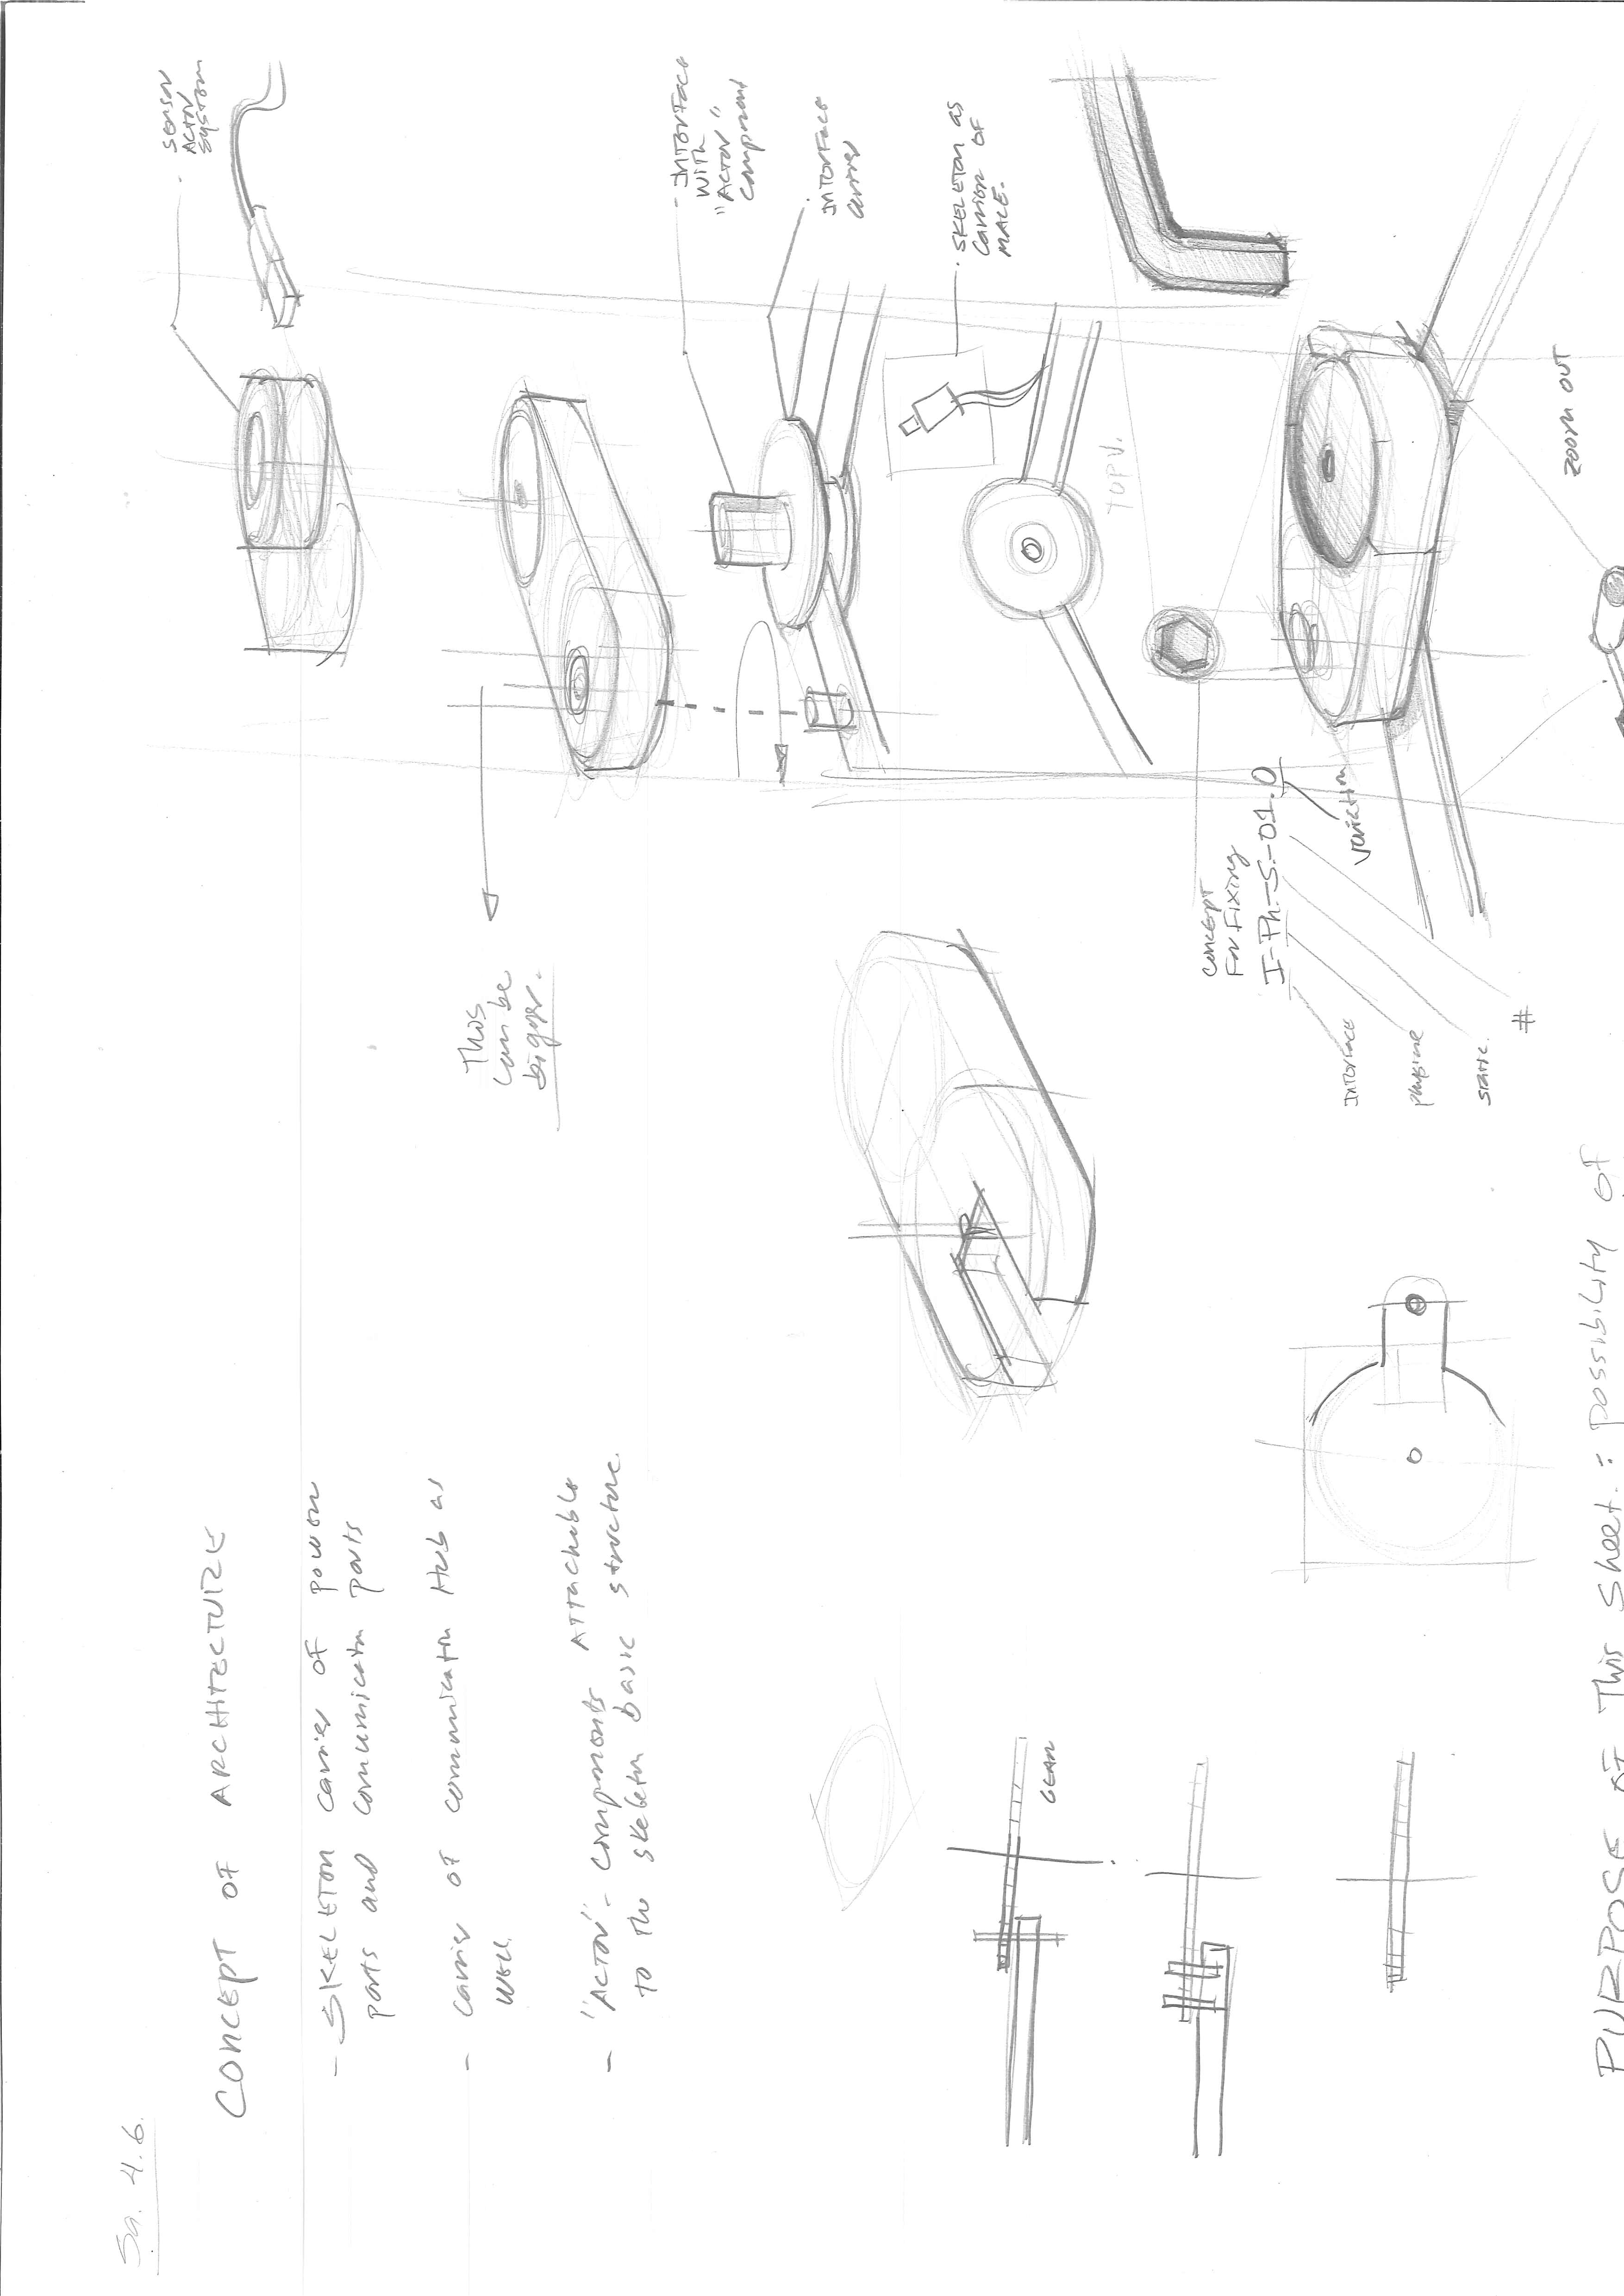 Sa. 4.6.
CONCEPT OF ARCHITECTURE
- SKELETON carrier OF power
ports and comunicatn ports
- carrier of comunicatn Hub as
well.
- "ACTOR" - components ATTACHABLE
to the skeletn basic structure.
SENSOR
ACTOR
SYSTEM
This
can be
bigger.
- INTERFACE
WITH
"ACTOR"
component
INTERFACE
carrier
. SKELETON AS
CARRIER OF
MALE.
TOP V.
CONCEPT
For FIXING
I-Ph-S-01.0
Variation
INTERFACE
physical
static.
#
ZOOM OUT
GEAR
PURPOSE OF This sheet : possibility of